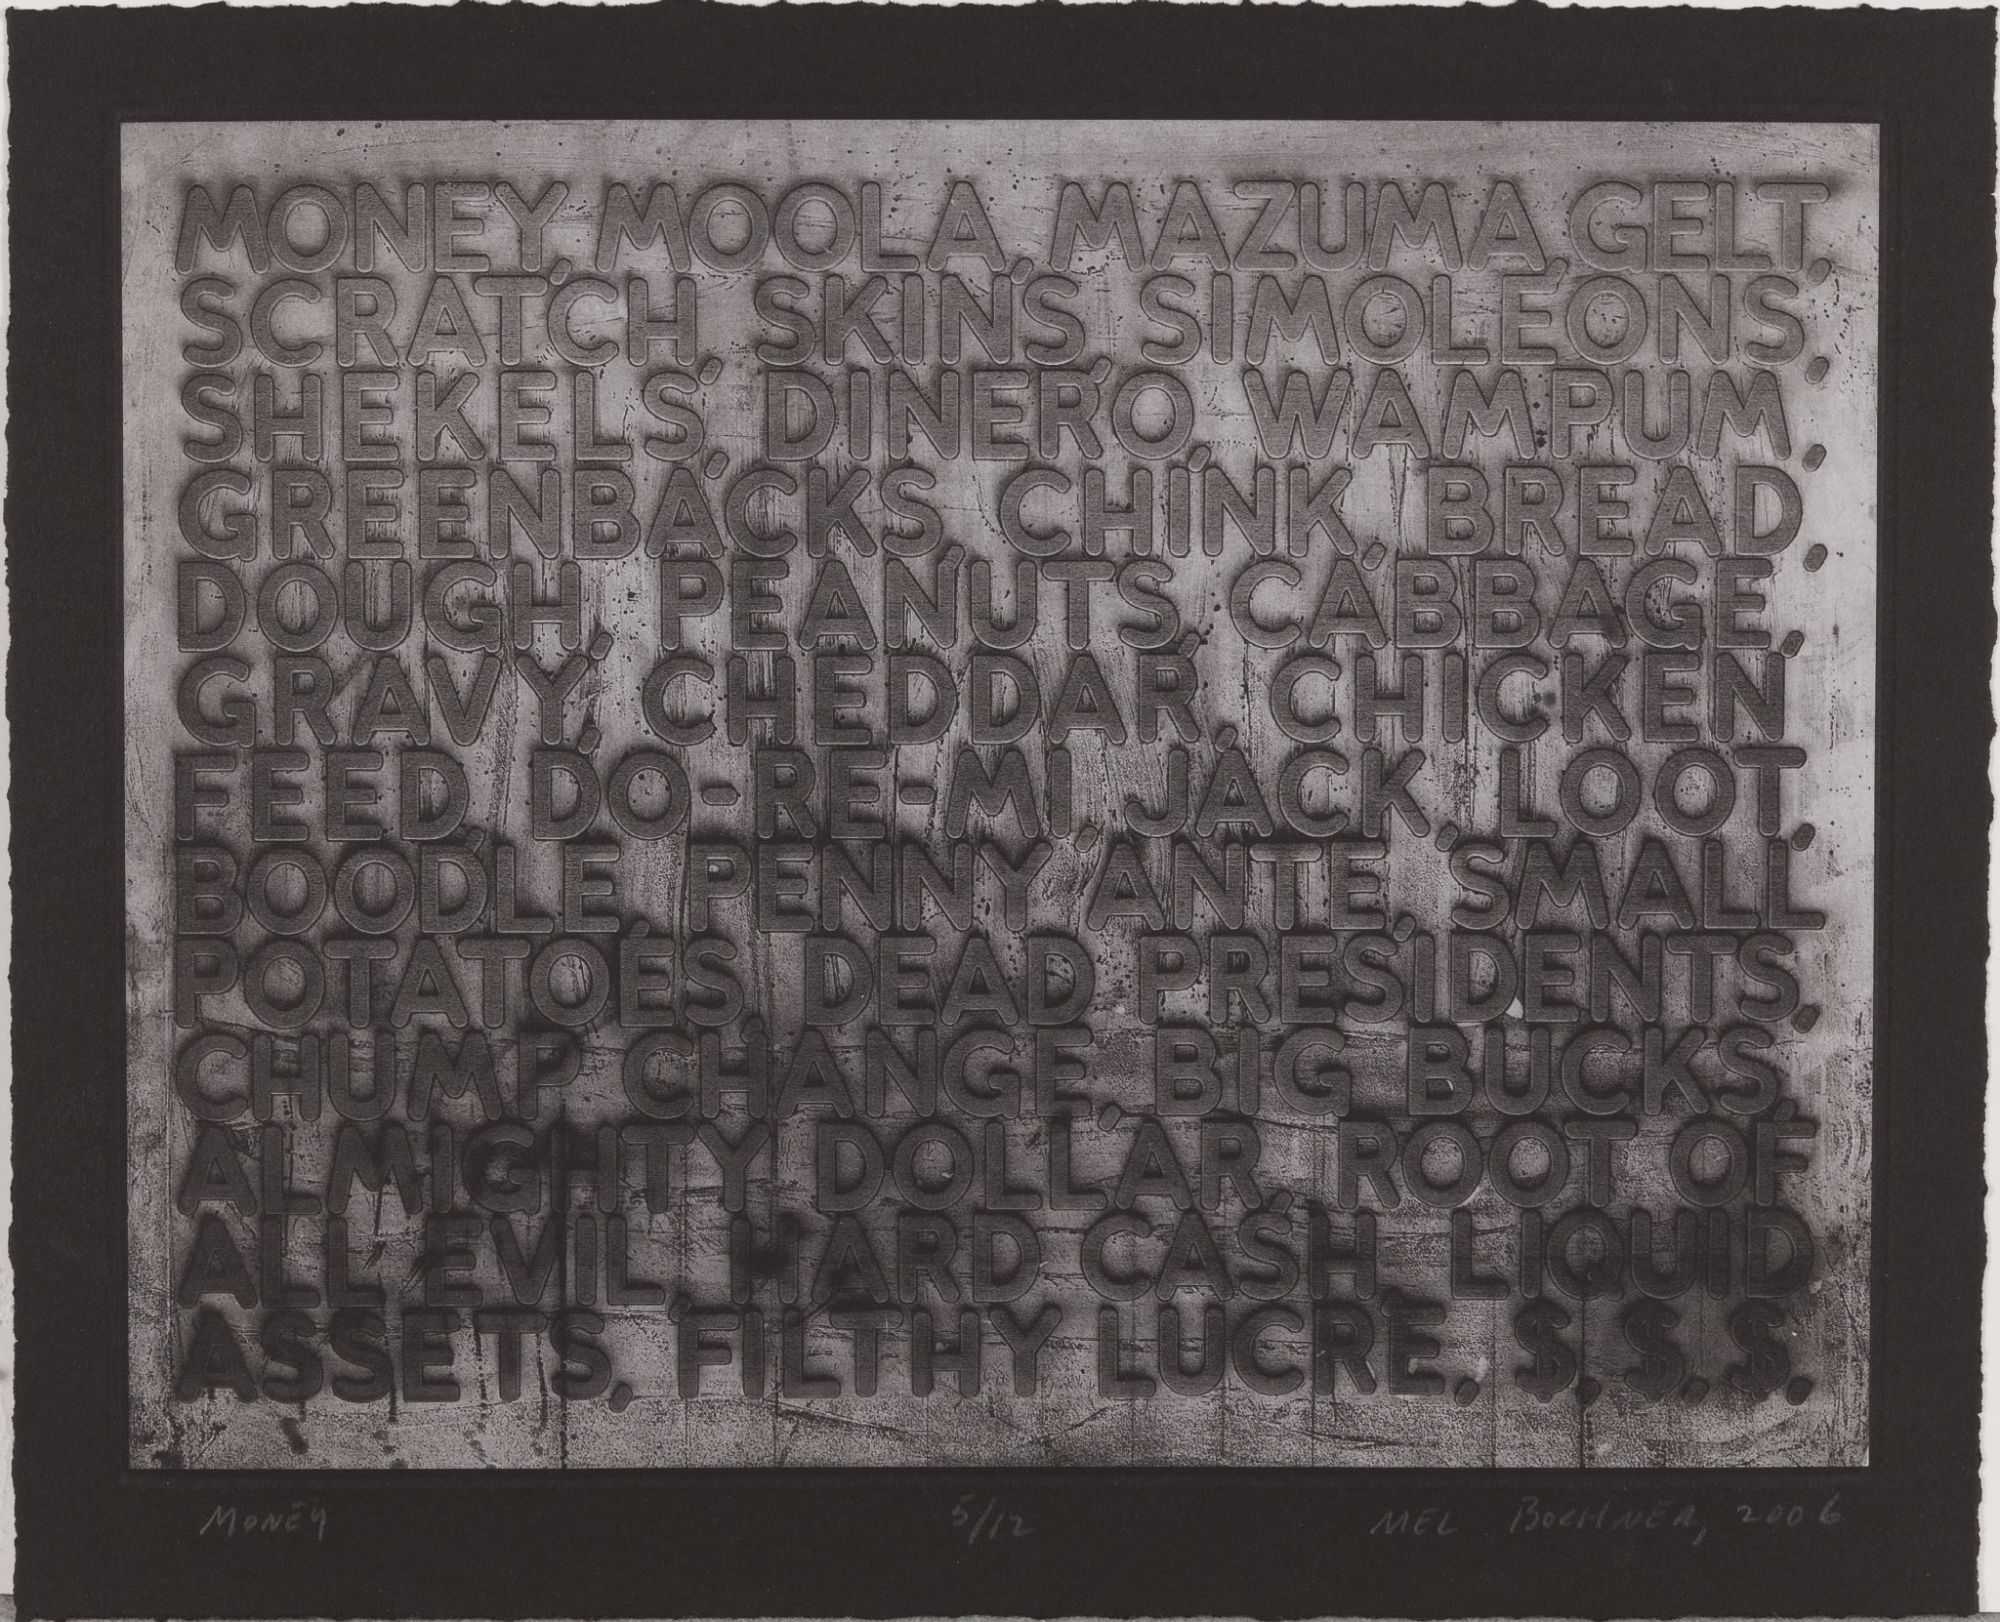 MONEY, MOOLA, MAZUMA, GELT,
SCRATCH, SKINS, SIMOLEONS,
SHEKELS, DINERO, WAMPUM,
GREENBACKS, CHINK, BREAD,
DOUGH, PEANUTS, CABBAGE,
GRAVY, CHEDDAR, CHICKEN
FEED, DO-RE-MI, JACK, LOOT,
BOODLE, PENNY ANTE, SMALL
POTATOES, DEAD PRESIDENTS,
CHUMP CHANGE, BIG BUCKS,
ALMIGHTY DOLLAR, ROOT OF
ALL EVIL, HARD CASH, LIQUID
ASSETS, FILTHY LUCRE, $, $, $,
MONEY 5/12 MEL BOCHNER, 2006